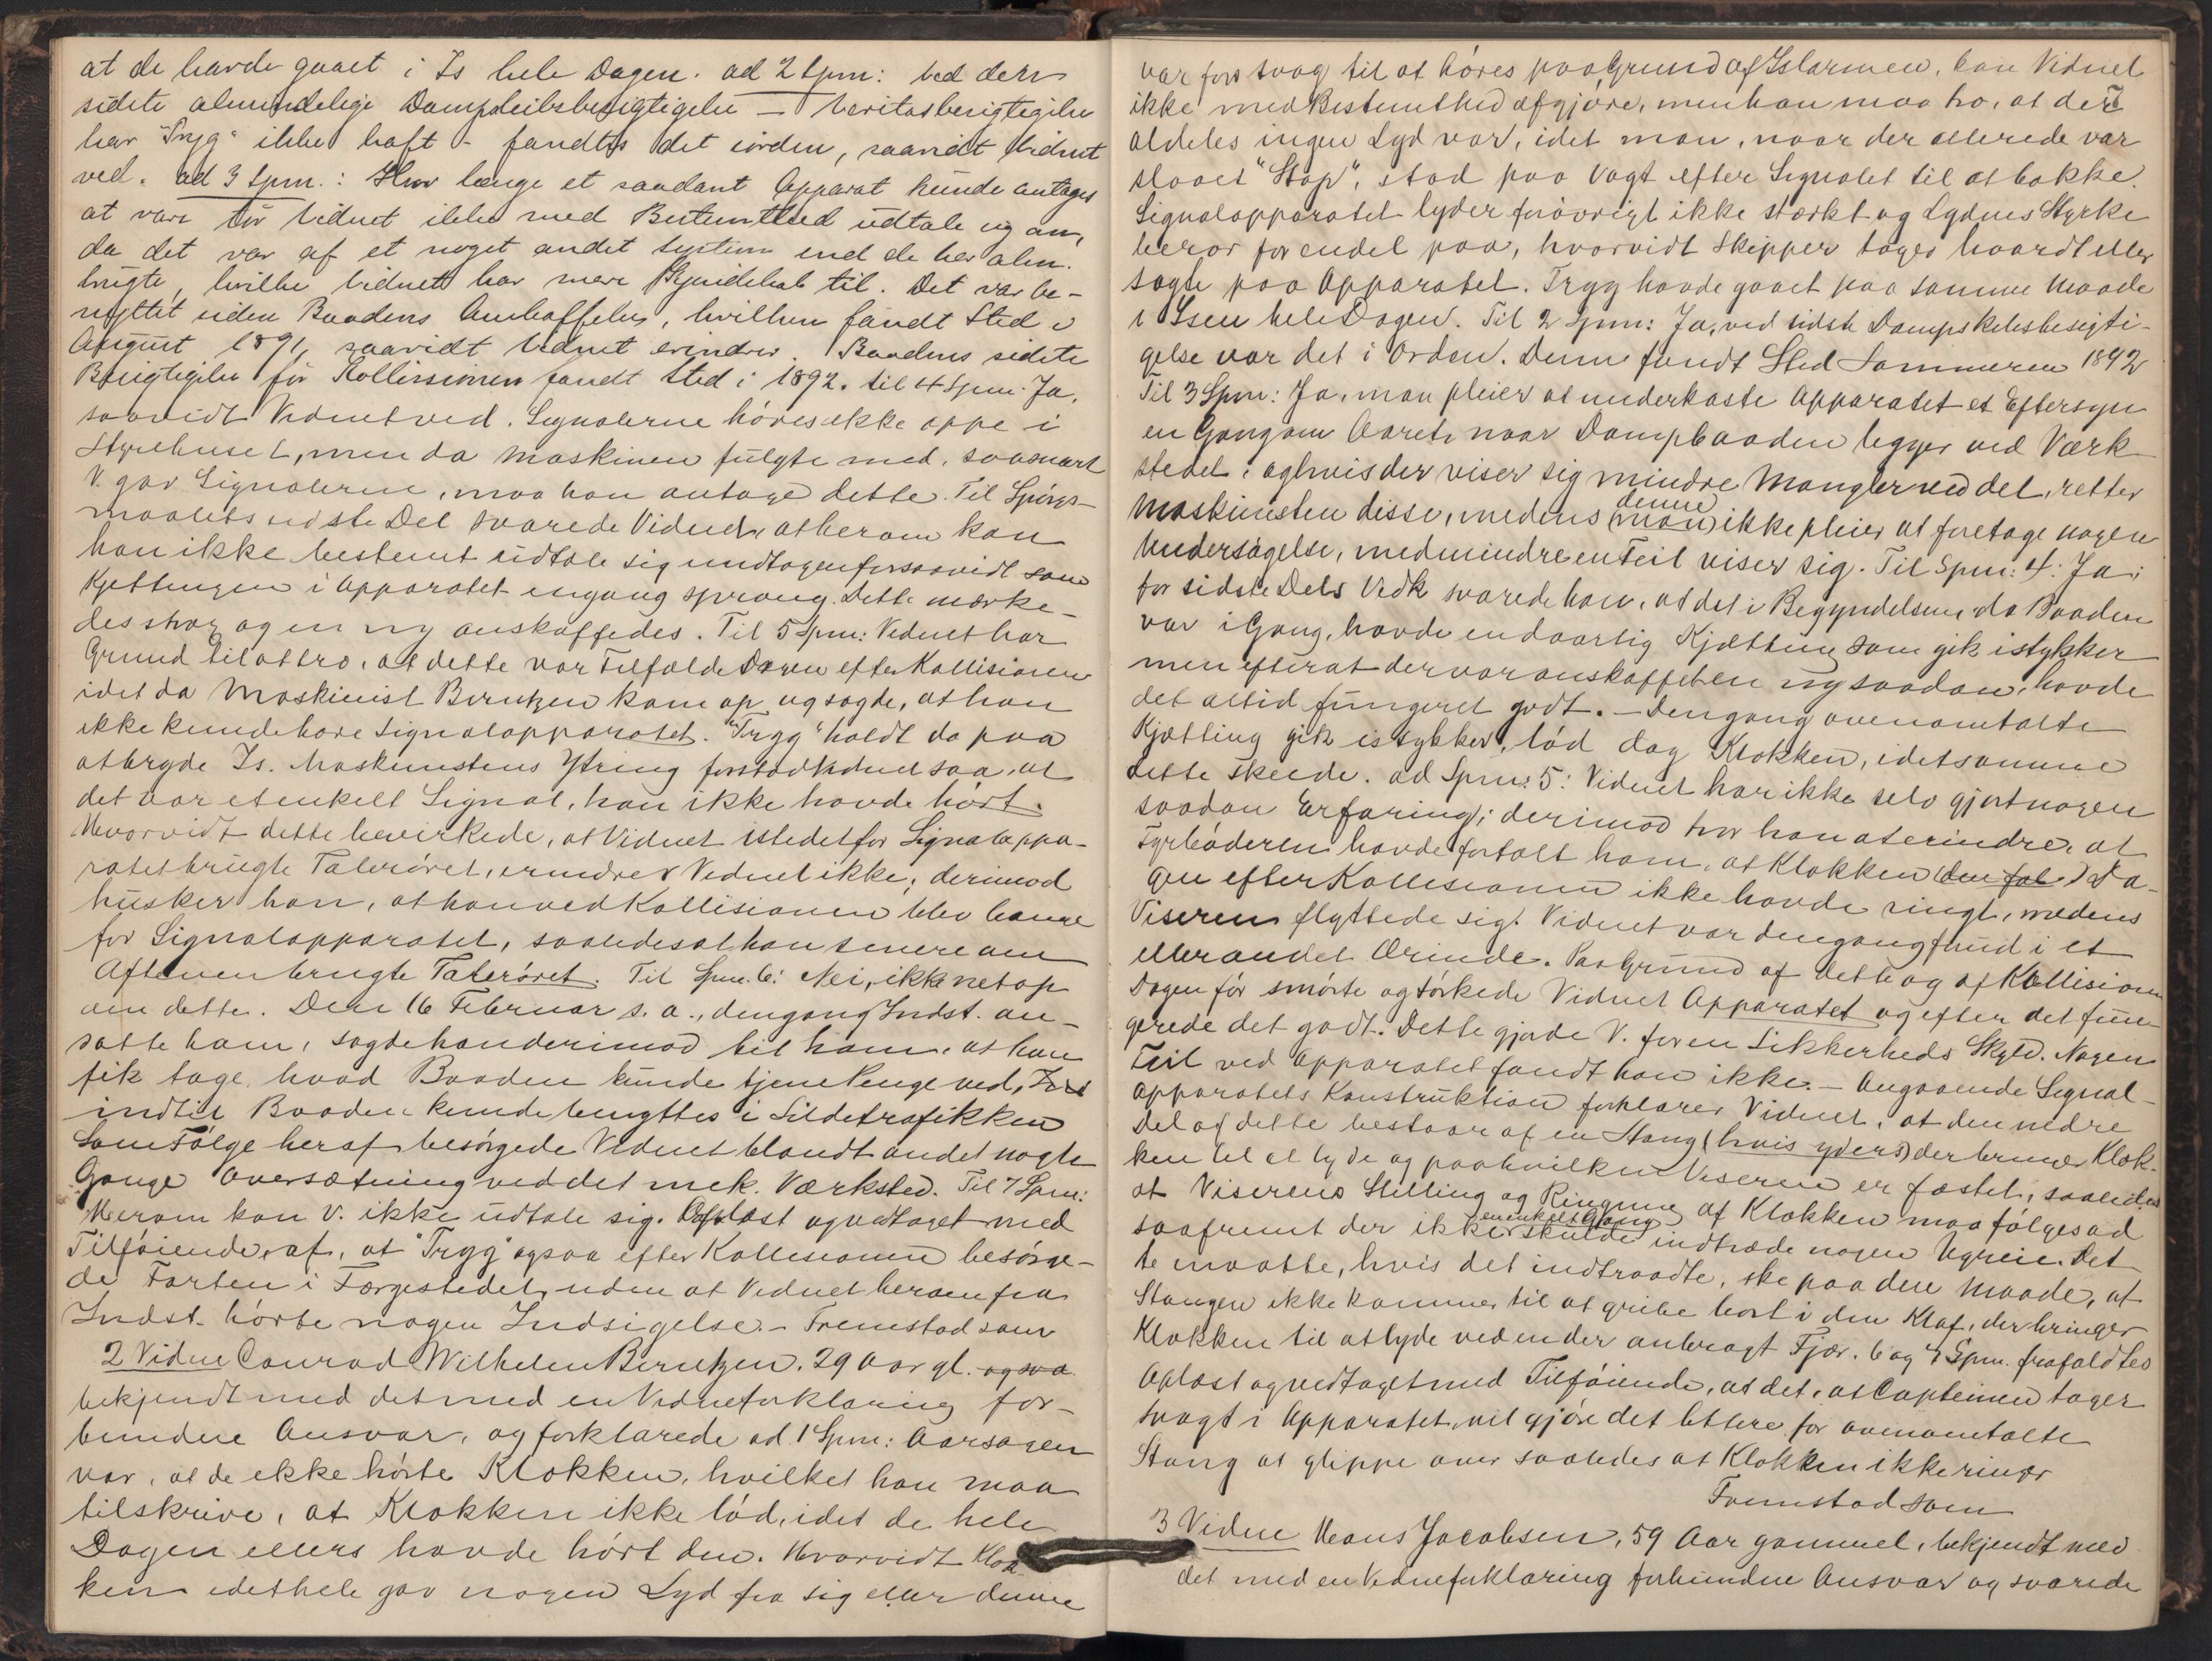 at de havde gaaet i Is hele Dagen. ad 2 Spm: Ved den
sidste almindelige Dampskibsbesigtigelse – Veritasbesigtigelse
har "Tryg" ikke haft – fandtes det iorden, saavidt Vidnet
ved. ad 3 Spm.: Hvor længe et saadant Apparat kunde antages
at vare tør Vidnet ikke med Bestemthed udtale sig om,
da det var af et noget andet System end de her alm.
brugte, hvilke Vidnet har mere Kjendskab til. Det var be-
nyttet siden Baadens Anskaffelse, hvilken fandt Sted i
August 1891, saavidt Vidnet erindrer. Baadens sidste
Besigtigelse før Kollissionen fandt Sted i 1892. Til 4 Spm: Ja,
saavidt Vidnet ved. Signalerne høres ikke oppe i
Styrehuset, men da Maskinen fulgte med, saasnart
V. gav Signalerne, maa han antage dette. Til Spørgs-
maalets sidste Del svarede Vidnet, at herom kan
han ikke bestemt udtale sig undtagen forsaavidt som
Kjettingen i Apparatet engang sprang. Dette mærke-
des strax og en ny anskaffedes. Til 5 Spm: Vidnet har
Grund til at tro, at dette var Tilfælde Dagen efter Kollisionen
idet da Maskinist Berntzen kom op og sagde, at han
ikke kunde høre Signalapparatet. "Tryg" holdt da paa
at bryde Is. Maskinistens Ytring forstod Vidnet saa, at
det var et enkelt Signal, han ikke havde hørt.
Hvorvidt dette bevirkede, at Vidnet istedetfor Signalappa-
ratet brugte Talerøret, erindrer Vidnet ikke; derimod
husker han, at han ved Kollisionen blev bange
for Signalapparatet, saaledes at han senere om
Aftenen brugte Talerøret. Til Spm. 6: Nei, ikke netop
om dette. Den 16 Februar s. a., dengang Indst. an-
satte ham, sagde han derimod til ham, at han
fik tage, hvad Baaden kunde tjene Penge ved,
indtil Baaden kunde benyttes i Sildetrafikken
Som Følge heraf besørgede Vidnet blandt andet nogle
Gange Oversætning ved det mek. Værksted. Til 7 Spm:
Herom kan V. ikke udtale sig. Oplæst og vedtaget med
Tilføiende af, at "Tryg" ogsaa efter Kollisionen besørge-
de Farten i Færgestedet, uden at Vidnet herom fra
Indst. hørte nogen Indsigelse. – Fremstod som
2 Vidne Conrad Wilhelm Berntzen, 29 Aar gl. ogsaa
bekjendt med det med en Vidneforklaring for-
bundne Ansvar, og forklarede ad 1 Spm: Aarsagen
var, at de ikke hørte Klokken, hvilket han maa
tilskrive, at Klokken ikke lød, idet de hele
Dagen ellers havde hørt den. Hvorvidt Klok-
ken idethele gav nogen Lyd fra sig eller denne
var for svag til at høres paa Grund af Islarmen, kan Vidnet
ikke med Bestemthed afgjøre, men han maa tro, at der
aldeles ingen Lyd var, idet man, naar der allerede var
slaaet "Stop", stod paa Vagt efter Signalet til at bakke.
Signalapparatet lyder forøvrigt ikke stærkt og Lydens Styrke
beror for endel paa, hvorvidt Skipper tager haardt eller
sagte paa Apparatet. Tryg havde gaaet paa samme Maade
i Isen hele Dagen. Til 2 Spm: Ja, ved sidste Dampskibsbesigti-
gelse var det i Orden. Denne fandt Sted Sommeren 1892
Til 3 Spm: Ja, man pleier at underkaste Apparatet et Eftersyn
en Gang om Aaret, naar Dampbaaden ligger ved Værk-
stedet, og hvis der viser sig mindre Mangler ved det, retter
Maskinisten disse, medens (man) denne ikke pleier at foretage nogen
Undersøgelse, medmindre en Feil viser sig. Til Spm: 4: Ja;
for sidste Dels Vedk svarede han, at det i Begyndelsen, da Baaden
var i Gang, havde en daarlig Kjætting som gik istykker
men efterat der var anskaffet en ny saadan, havde
det altid fungeret godt. – Dengang ovenomtalte
Kjætting gik istykker, lød dog Klokken, idetsamme
dette skeede. ad Spm: 5: Vidnet har ikke selv gjort nogen
saadan Erfaring; derimod tror han at erindre, at
Fyrbøderen havde fortalt ham, at Klokken (den føl) Da-
gen efter Kollisionen ikke havde ringt, medens
Viseren flyttede sig. Vidnet var dengang frud i et
eller andet Ærinde. Paa Grund af dette og af Kollisionen
Dagen før smørte og tørkede Vidnet Apparatet og efter det fun-
gerede det godt. Dette gjorde V. for en Sikkerheds Skyld. Nogen
Feil ved Apparatet fandt han ikke. – Angaaende Signal-
apparatets Konstruktion forklarer Vidnet, at den nedre
Del af dette bestaar af en Stang (hvis yders) der bringer Klok-
ken til at lyde og paa hvilken Viseren er fæstet, saaledes
at Viserens Stilling og Ringning af Klokken maa følges ad
saafremt der ikke en enkelt Gang skulde indtræde nogen Ugreie. Det-
te maatte, hvis det indtraadte, ske paa den Maade, at
Stangen ikke kommer til at gribe bort i den Klaf, der bringer
Klokken til at lyde ved en der anbragt Fjær. 6 og 7 Spm. frafaldtes
Oplæst og vedtaget med Tilføiende, at det, at Capteinen tager
svagt i Apparatet, vil gjøre det lettere for ovenomtalte
Stang at glippe over saaledes at Klokken ikke ringer
Fremstod som
3 Vidne Hans Jacobsen, 59 Aar gammel, bekjendt med
det med en Vidneforklaring forbundne Ansvar og svarede